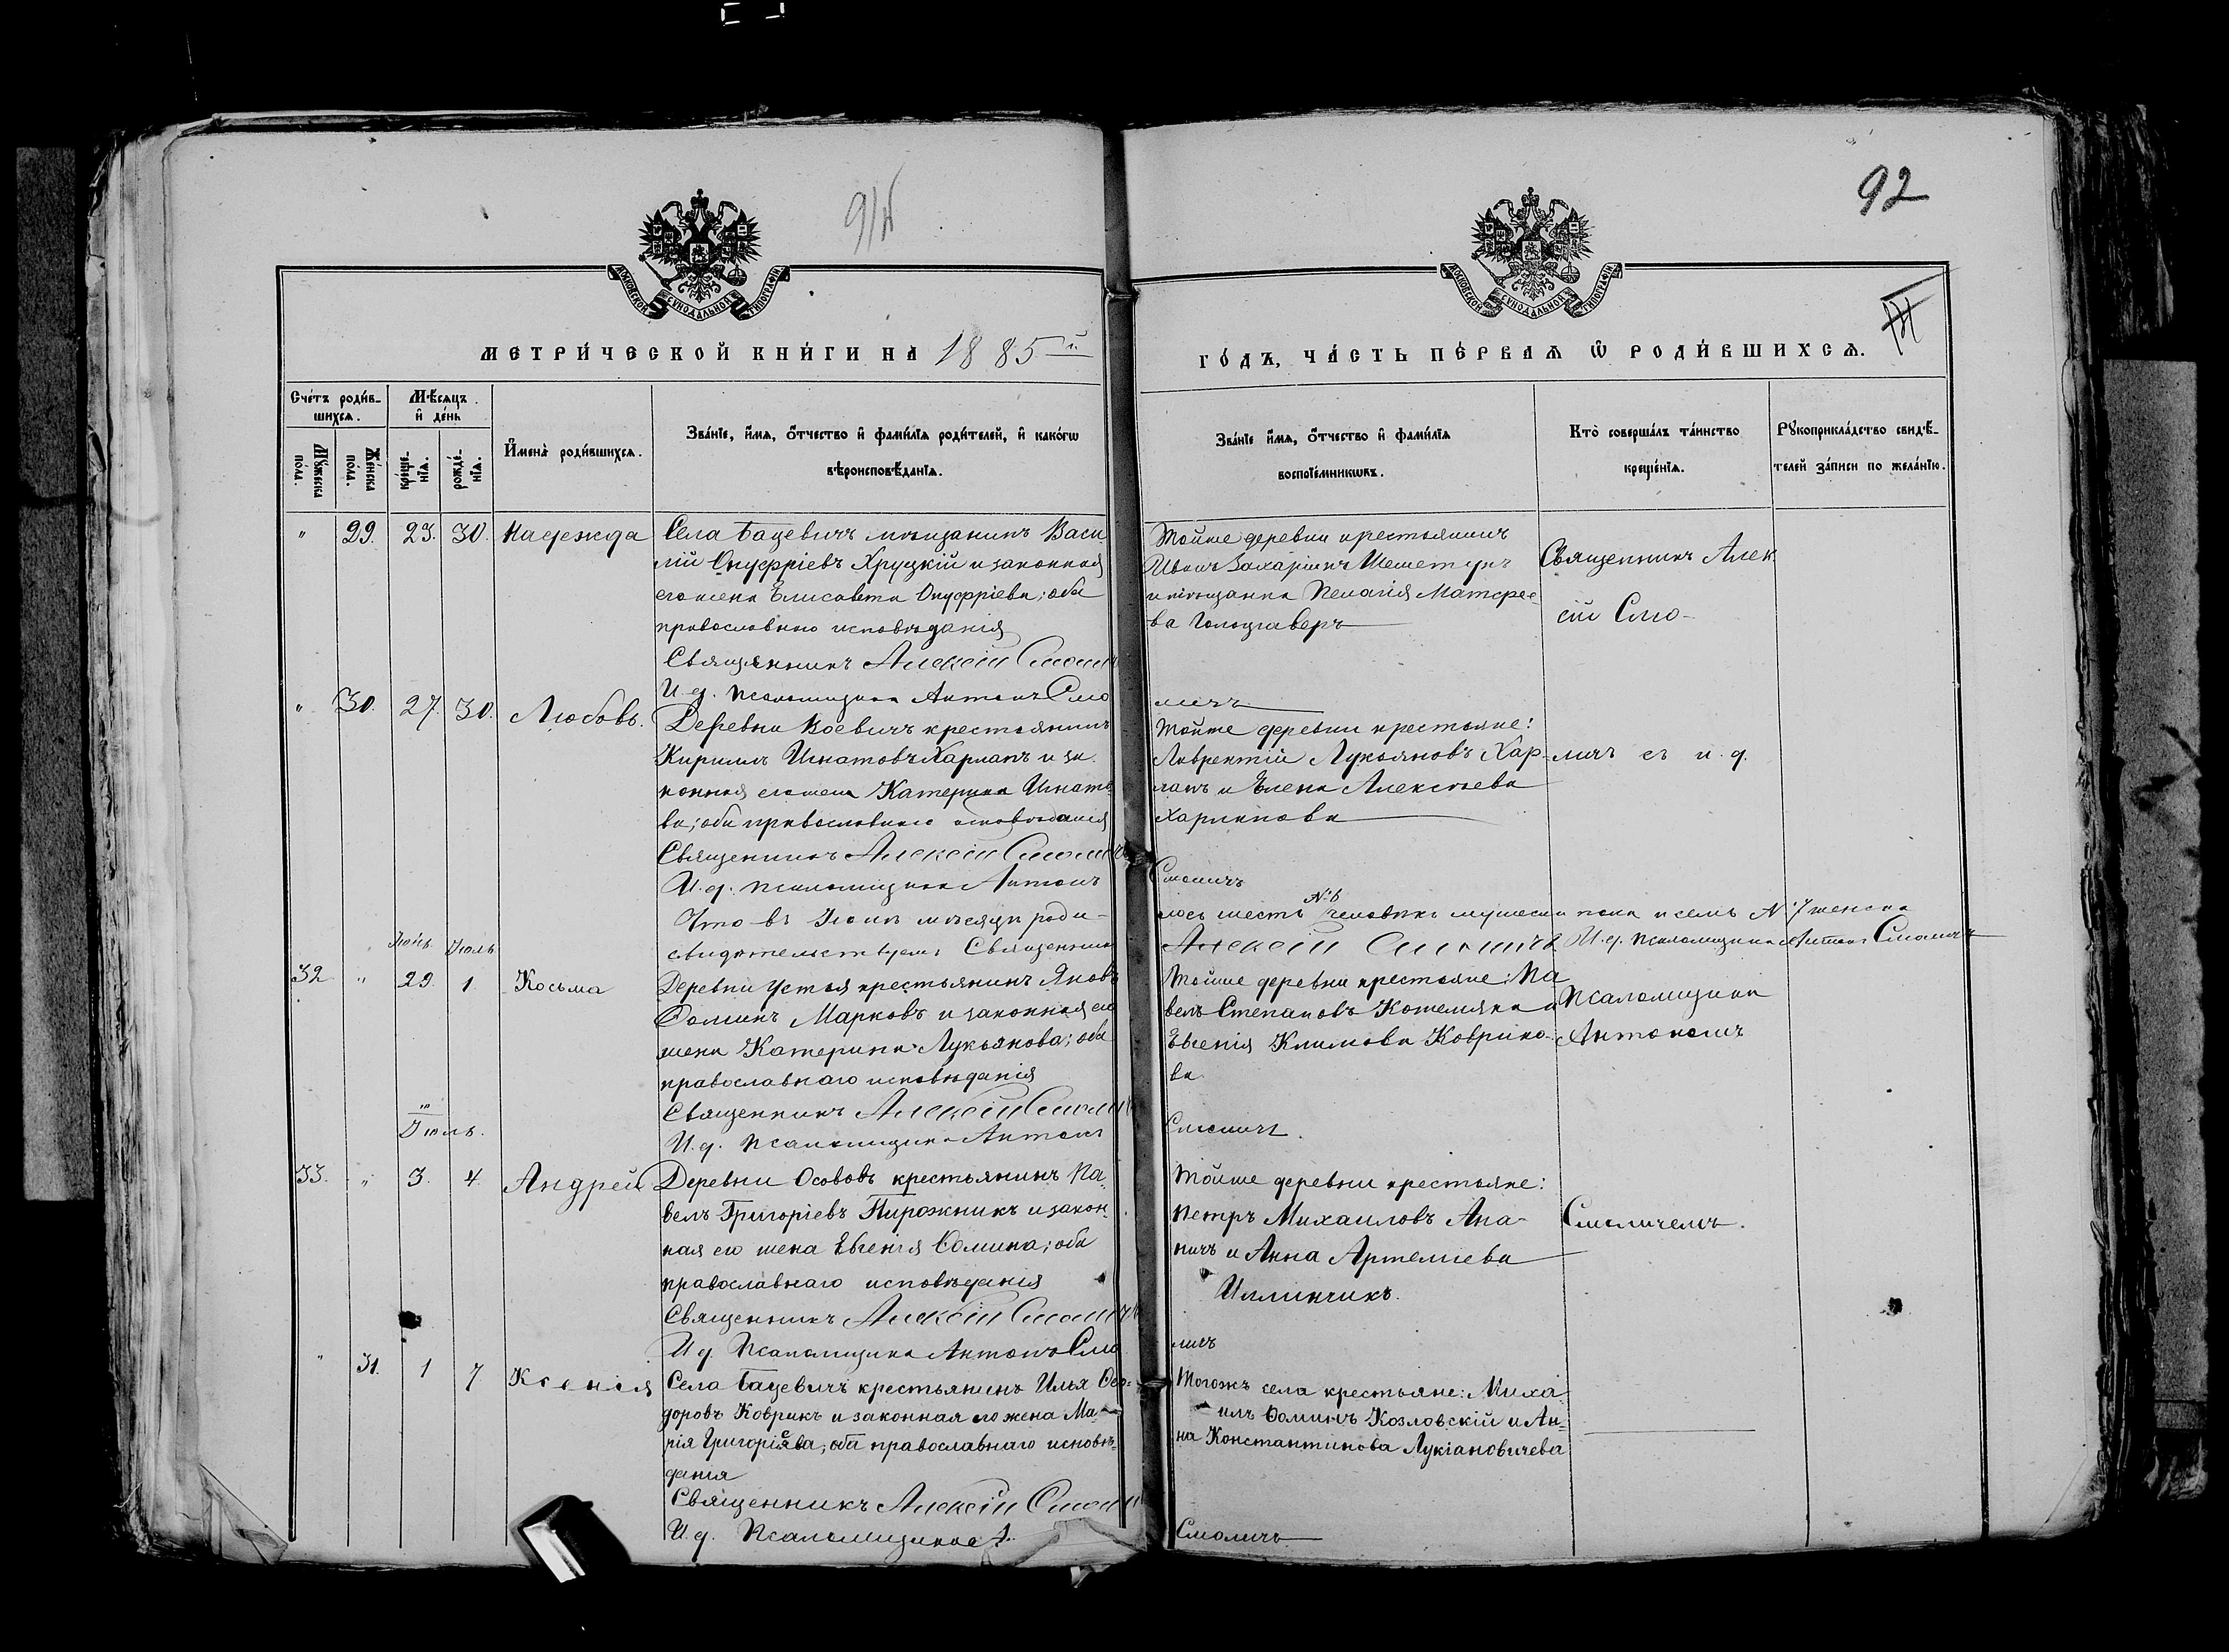 91
92
МОСКОВСКОЙ СѴНОДАЛЬНОЙ ТИПОГРАФІИ
МОСКОВСКОЙ СѴНОДАЛЬНОЙ ТИПОГРАФІИ
МЕТРИ́ЧЕСКОЙ КНИ́ГИ НА 1885й
ГО́ДЪ, ЧА́СТЬ ПЕ́РВАЯ Ѡ РОДИ́ВШИХСЯ.
Счетъ роди́в-
шихся.
Мѣсяцъ
и де́нь
Мужеска пола.
Женска пола.
креще-
нія.
рожде́-
нія.
Имена̀ роди́вшихся.
Зва́ніе, имя, отчество и фами́лія роди́телей, и како́гѡ
вѣроисповѣданія.
Зва́ніе имя, отчество и фами́лія
воспріе́мниковъ.
Кто̀ соверша́лъ та́инство
креще́нія.
Рукоприкла́дство свидѣ-
телей за́писи по жела́нію.
" 29. 29. 30. Надежда
Села Бацевичъ мѣщанинъ Васи
лій Онуфріевъ Хруцкій и законная
его жена Елисавета Онуфріева; оба
православнаго исповѣданія
Священникъ Алексій Смоличъ
И. д. псаломщика Антонъ Смо
Тойже деревни крестьянинъ
Иванъ Захаріинъ
и мѣщанка Пелагія
ва
личъ
Священникъ Алек
сій Смо-
" 30. 27. 30. Любовь.
Деревни Воевичъ крестьянинъ
Кириллъ Игнатовъ Харлапъ и за
конная его жена Катерина Игнато
ва; оба православнаго исповѣданія
Священникъ Алексій Смоличъ
И. д. псаломщика Антонъ
Тойже деревни крестьяне:
Лаврентій Лукьяновъ Хар-
лапъ и Елена Алексѣева
Харлапова
Смоличъ
личъ съ и. д.
Что въ Іюнѣ мѣсяцѣ роди-
лось шесть №6 человѣкъ мужеска пола и семь №7 женска
свидѣтельствуемъ Священникъ
Алексій Смоличъ И. д. псаломщика Антонъ Смоличъ
Іюнь Іюль
32 " 29. 1 Косьма
Деревни Устья крестьянинъ Яковъ
Ѳоминъ Марковъ и законная его
жена Катерина Лукьянова; оба
православнаго исповѣданія
Священникъ Алексій Смоличъ
И. д. псаломщика Антонъ
Тойже деревни крестьяне: Па
велъ Степановъ Кожемяка и
Евгенія Климова Коврико-
ва
Смоличъ.
Псаломщика
Антономъ
Іюль.
33. " 3. 4. Андрей
Деревни Осововъ крестьянинъ Па
велъ Григоріевъ Пирожникъ и закон
ная его жена Евгенія Ѳомина; оба
православнаго исповѣданія
Священникъ Алексій Смоличъ
И. д. Псаломщика Антонъ Смо
Тойже деревни крестьяне:
Петръ Михаиловъ Апа-
ничъ и Анна Артеміева
Иллинчикъ.
личъ
Смоличемъ.
" 31. 1 7 Ксенія
Села Бацевичъ крестьянинъ Илья Ѳео-
доровъ Коврикъ и законная его жена Ма-
рія Григоріева; оба православнаго исповѣ-
данія
Священникъ Алексій Смоличъ
И. д. Псаломщика А.
Тогожъ села крестьяне: Миха-
илъ Ѳоминъ Козловскій и Ан-
на Константинова Лукіановичева
Смоличъ